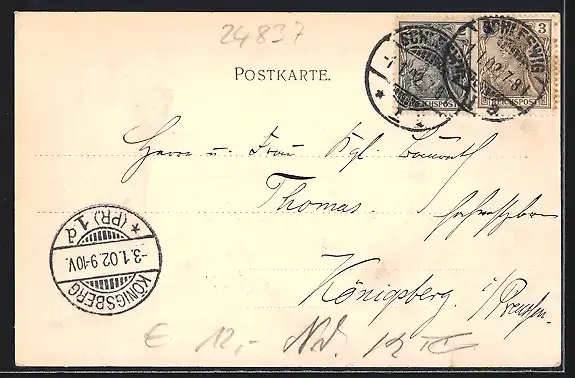 24837
POSTKARTE.
SCHLESWIG
3
REICHSPOST
REICHSPOST
Herrn u. Frau Kgl. Baurath
Thomas.
Königsberg. i/Preußen.
KÖNIGSBERG
-3.1.02.9-10V.
* (PR.) 1 d
€ 12,-